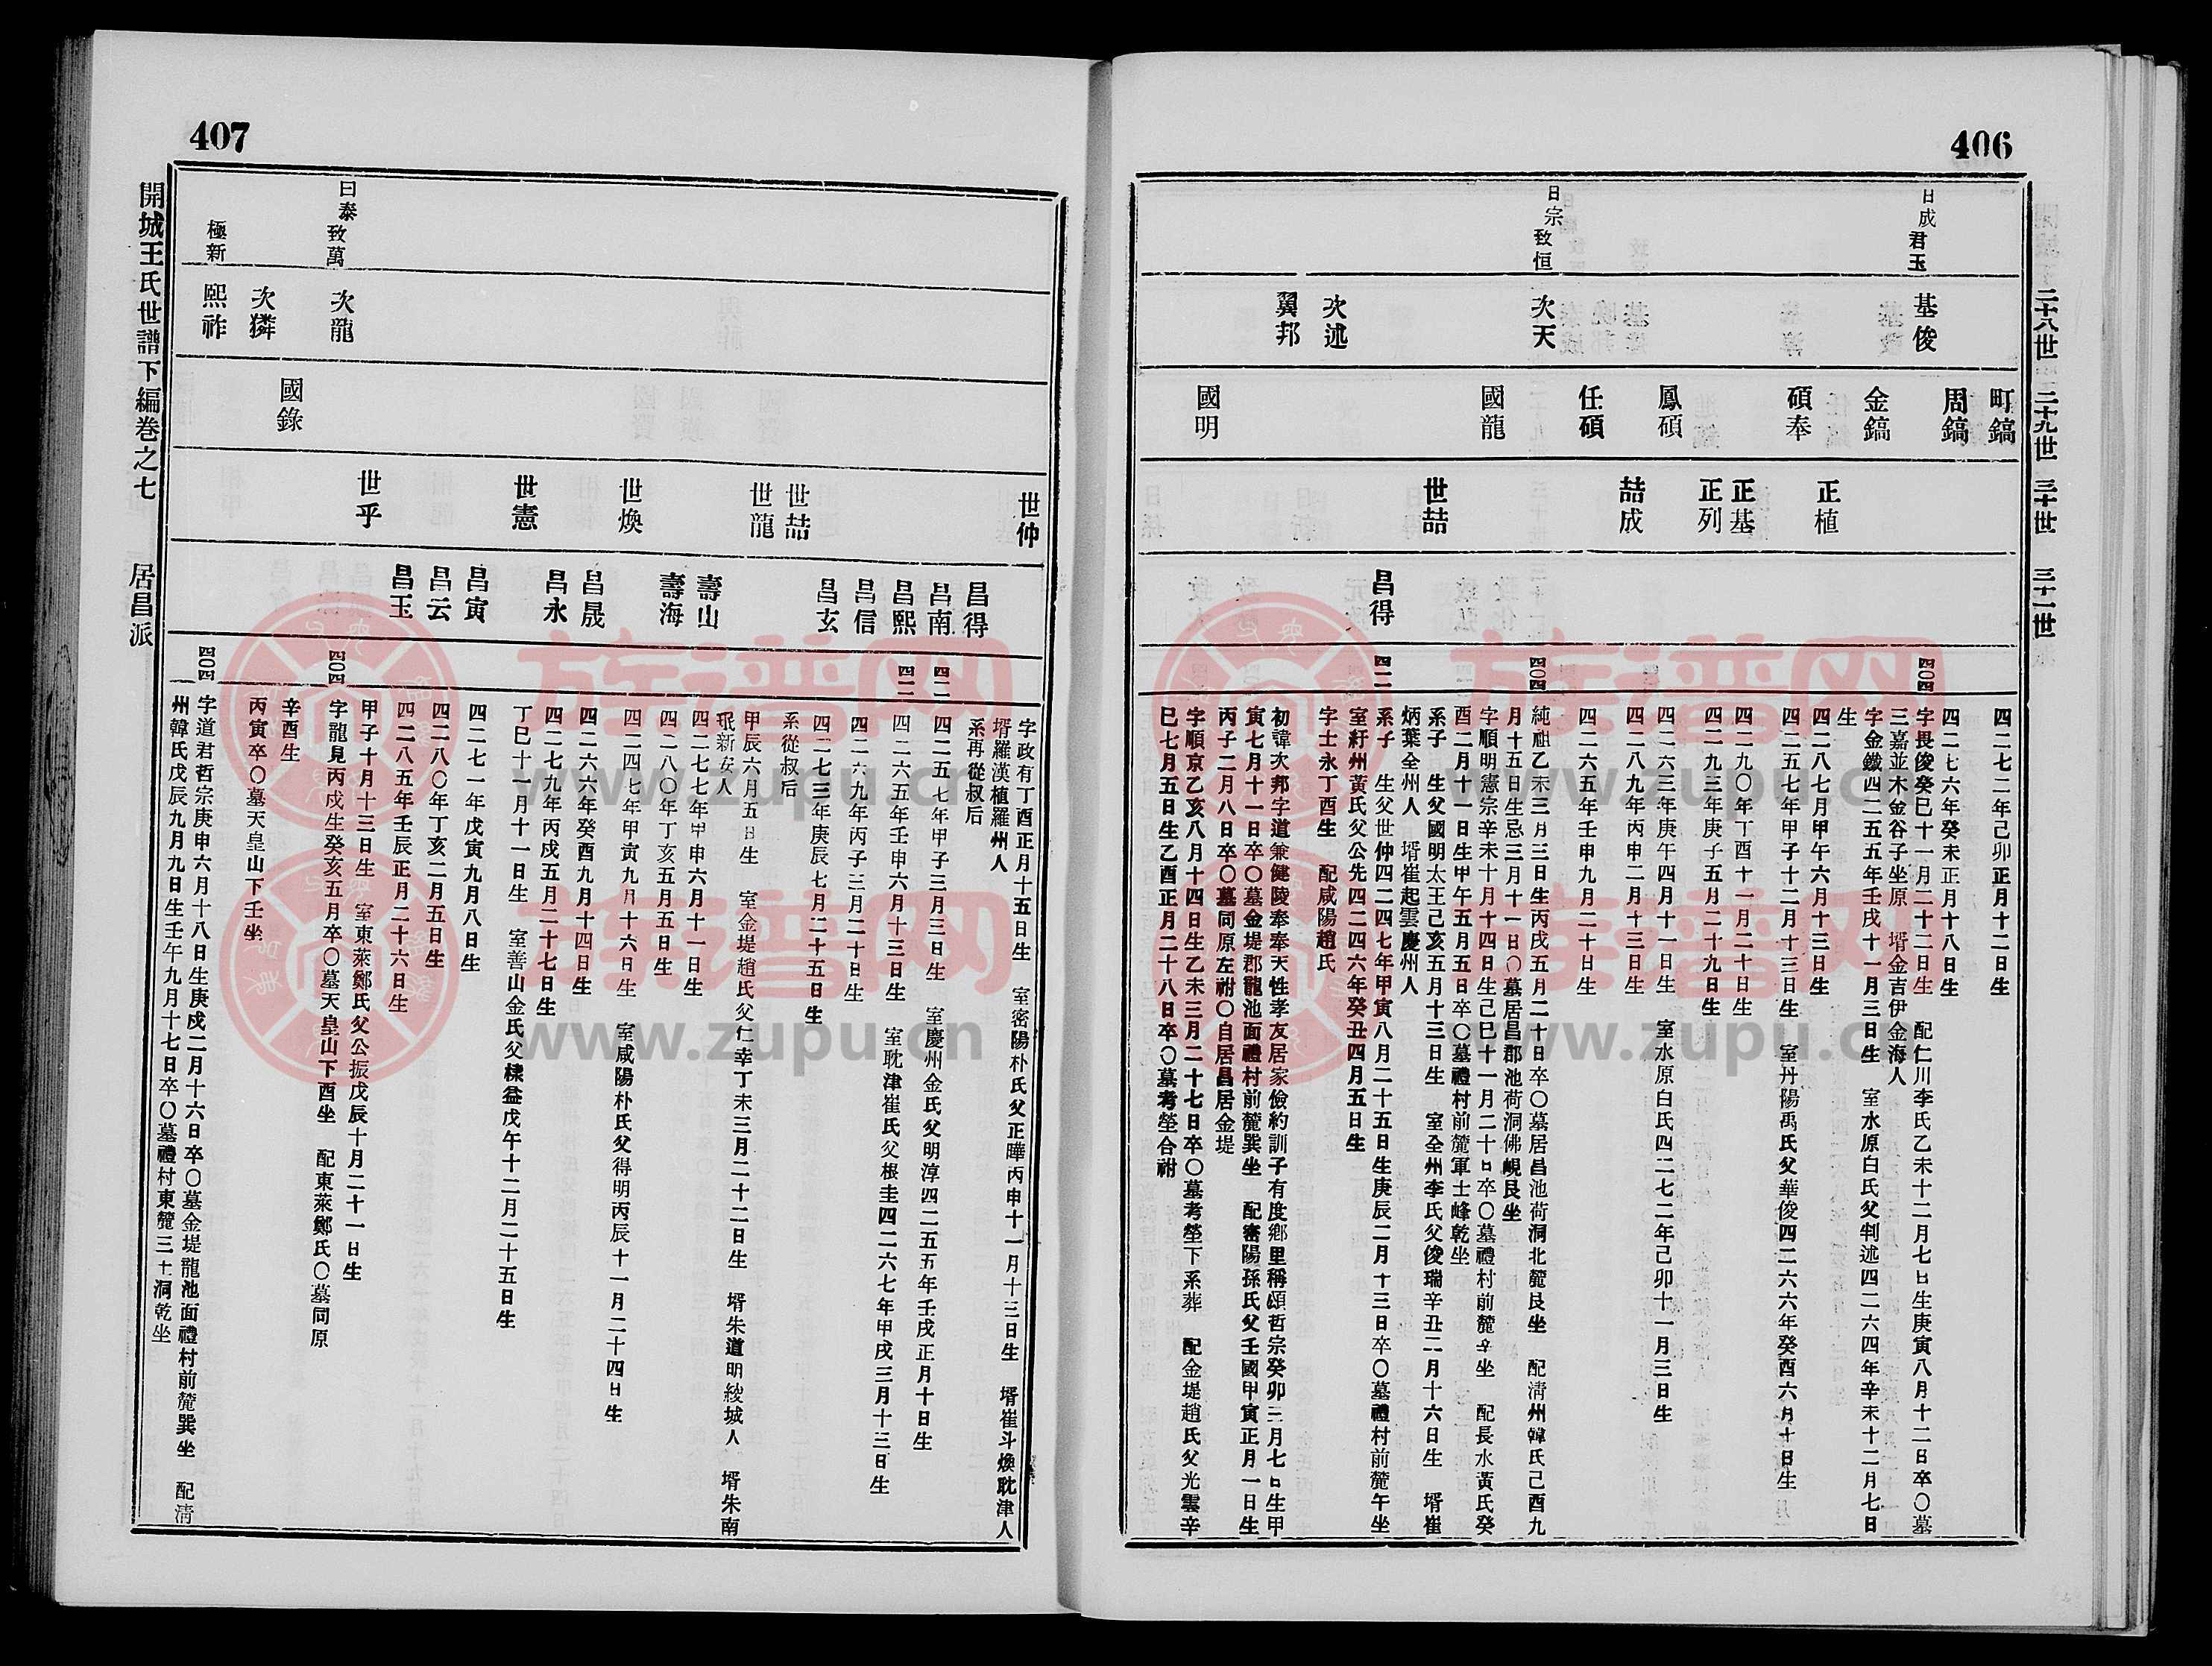 406
二十八世 二十九世 三十世 三十一世
日成 君玉
日宗 致恒
基俊
次天
次述
翼邦
町鎬
周鎬
金鎬
碩奉
鳳碩
任碩
國龍
國明
正植
正基
正列
喆成
世喆
昌得
四〇四
四〇四
四二
四二七二年己卯正月十二日生
四二七六年癸未正月十八日生
字畏俊癸巳十一月二十二日生 配仁川李氏乙未十二月七日生庚寅八月十二日卒〇墓
三嘉並木金谷子坐原 壻金吉伊金海人
字金鐵四二五五年壬戌十一月三日生 室水原白氏父判述四二六四年辛未十二月七日
生
四二八七月甲午六月十三日生
四二五七年甲子十二月十三日生 室丹陽禹氏父華俊四二六六年癸酉六月十日生
四二九〇年丁酉十一月二十日生
四二九三年庚子五月二十九日生
四二六三年庚午四月十一日生 室水原白氏四二七二年己卯十一月三日生
四二八九年丙申二月十三日生
四二六五年壬申九月二十日生
純祖乙未三月三日生丙戌五月二十日卒〇墓居昌池荷洞北麓艮坐 配淸州韓氏己酉九
月十五日生忌三月十一日〇墓居昌郡池荷洞佛峴艮坐
字順明憲宗辛未十月十四日生己巳十一月二十日卒〇墓禮村前麓辛坐 配長水黃氏癸
酉二月十一日生甲午五月五日卒〇墓禮村前麓軍士峰乾坐
系子 生父國明太王己亥五月十三日生 室全州李氏父俊瑞辛丑二月十六日生 壻崔
炳葉全州人 壻崔起雲慶州人
系子 生父世仲四二四七年甲寅八月二十五日生庚辰二月十三日卒〇墓禮村前麓午坐
室紆州黃氏父公先四二四六年癸丑四月五日生
字士永丁酉生 配咸陽趙氏
初諱次邦字道兼健陵奉奉天性孝友居家儉約訓子有度鄕里稱頌哲宗癸卯三月七日生甲
寅七月十一日卒〇墓金堤郡龍池面禮村前麓巽坐 配密陽孫氏父壬國甲寅正月一日生
丙子二月八日卒〇墓同原左祔〇自居昌居金堤
字順京乙亥八月十四日生乙未三月二十七日卒〇墓考塋下系葬 配金堤趙氏父光雲辛
巳七月五日生乙酉正月二十八日卒〇墓考塋合祔
407
開城王氏世譜下編卷之七 居昌派
曰泰 致萬
極新
次龍
次獜
熙祚
國錄
世仲
世喆
世龍
世煥
世憲
世乎
昌得
昌南
昌熙
昌信
昌玄
壽山
壽海
昌晟
昌永
昌寅
昌云
昌玉
四二
四二
四〇四
四〇四
字政有丁酉正月十五日生 室密陽朴氏父正曄丙申十一月十三日生 壻崔斗煥耽津人
壻羅漢植羅州人
系再從叔后
四二五七年甲子三月三日生 室慶州金氏父明淳四二五五年壬戌正月十日生
四二六五年壬申六月十三日生 室耽津崔氏父根圭四二六七年甲戌三月十三日生
四二六九年丙子三月二十日生
四二七三年庚辰七月二十五日生
系從叔后
甲辰六月五日生 室金堤趙氏父仁幸丁未三月二十二日生 壻朱道明綾城人 壻朱南
珉新安人
四二七七年甲申六月十一日生
四二八〇年丁亥五月五日生
四二四七年甲寅九月十六日生 室咸陽朴氏父得明丙辰十一月二十四日生
四二六六年癸酉九月十四日生
四二七九年丙戌五月二十七日生
丁巳十一月十一日生 室善山金氏父棣益戊午十二月二十五日生
四二七一年戊寅九月八日生
四二八〇年丁亥二月五日生
四二八五年壬辰正月二十六日生
甲子十月十三日生 室東萊鄭氏父公振戊辰十月二十一日生
字龍見丙戌生癸亥五月卒〇墓天皇山下酉坐 配東萊鄭氏〇墓同原
辛酉生
丙寅卒〇墓天皇山下壬坐
字道君哲宗庚申六月十八日生庚戌二月十六日卒〇墓金堤龍池面禮村前麓巽坐 配淸
州韓氏戊辰九月九日生壬午九月十七日卒〇墓禮村東麓三十洞乾坐
族谱网
www.zupu.cn
族谱网
www.zupu.cn
族谱网
www.zupu.cn
族谱网
www.zupu.cn